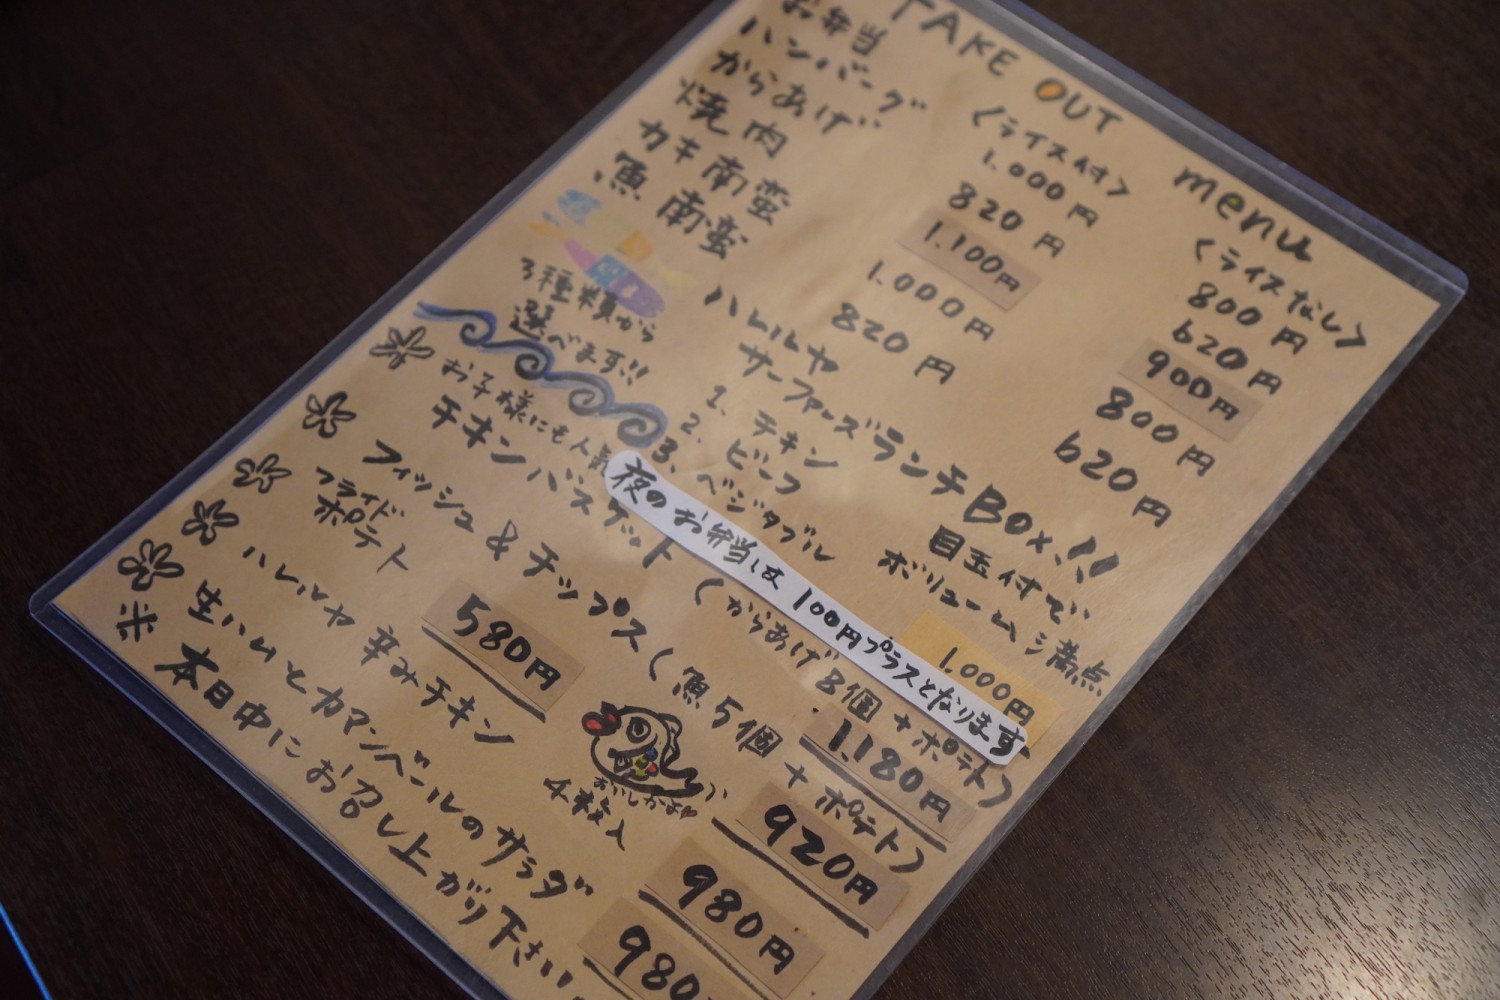 TAKE OUT menu
お弁当 〈ライス付〉 〈ライスなし〉
ハンバーグ 1.000円 800円
からあげ 820円 620円
焼肉 1.100円 900円
カキ南蛮 1.000円 800円
魚南蛮 820円 620円
ハレルヤ
サーファーズランチBox.!!
3種類から
選べます!!
1. チキン
2. ビーフ
3. ベジタブル
目玉付で
ボリューム満点
1.000円
夜のお弁当は100円プラスとなります
お子様にも人気
チキンバスケット (からあげ8個+ポテト)
1.180円
フィッシュ&チップス(魚5個+ポテト)
920円
フライド
ポテト
580円
おいしかま♡
ハレルヤ 辛みチキン 4枚入
980円
生ハムとカマンベールのサラダ
980
※ 本日中にお召し上がり下さい